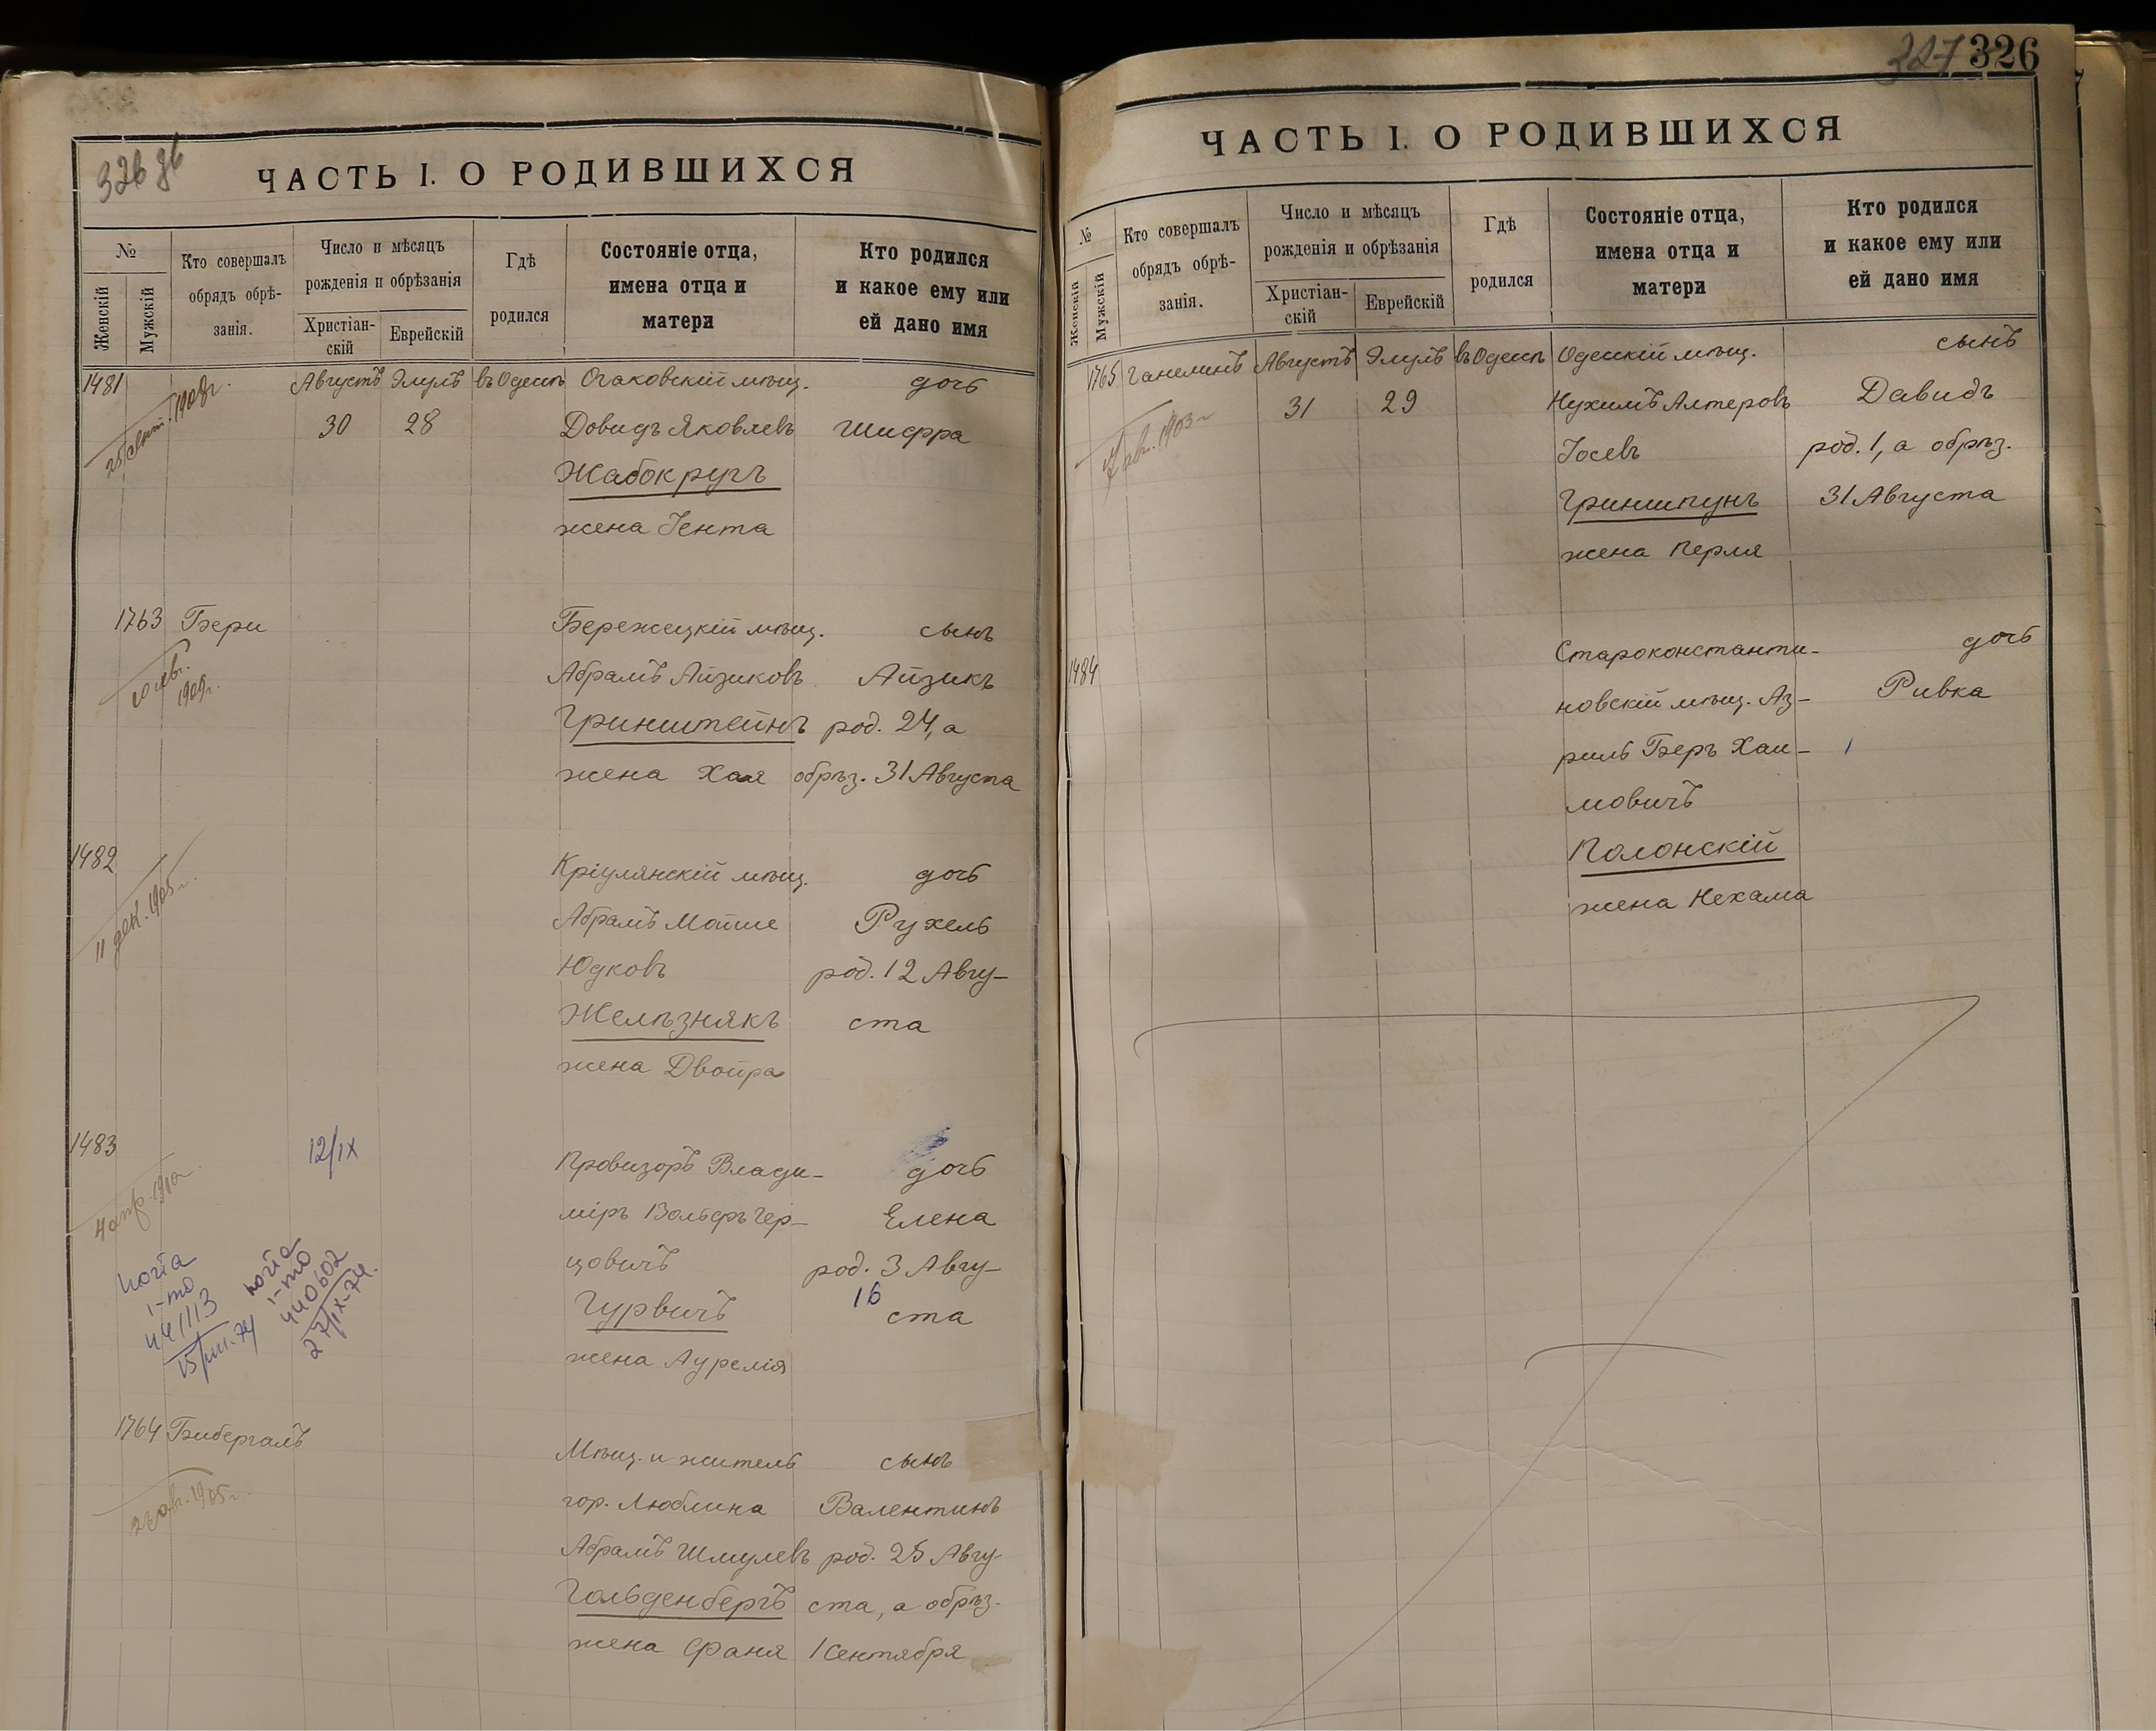 326 об
ЧАСТЬ I. О РОДИВШИХСЯ
№
Женскій
Мужскій
Кто совершалъ
обрядъ обрѣ-
занія.
Число и мѣсяцъ
рожденія и обрѣзанія
Христіан-
скій
Еврейскій
Гдѣ
родился
Состояніе отца,
имена отца и
матери
Кто родился
и какое ему или
ей дано имя
1481 Августъ Элулъ въ Одессѣ Очаковскій мѣщ. дочь
30 28 Довидъ Яковлевъ Шифра
25 сент. 1908 г.
Жабокругъ
жена Іента
1763 Бери Бережецкій мѣщ. сынъ
1909 г.
Абрамъ Айзиковъ Айзикъ
Гринштейнъ род. 24, а
жена Хая обрѣз. 31 Августа
1482 Кріулянскій мѣщ. дочь
11 дек. 1905 г.
Абрамъ Мойше Рухель
Юдковъ род. 12 Авгу-
Желѣзнякъ ста
жена Двойра
1483 12/IX Провизоръ Влади- дочь
4 апр. 1910 г.
міръ Вольфъ Гер- Елена
цовичъ род. 3 Авгу-
16
Гурвичъ ста
жена Аурелія
копія
і-то
441113
15/VIII-74
копія
і-то
440602
27/IX-74.
1764 Бибергалъ Мѣщ. и житель сынъ
гор. Люблина Валентинъ
1905 г.
Абрамъ Шмулевъ род. 25 Авгу-
Гольденбергъ ста, а обрѣз.
жена Фаня 1 Сентября
327 326
ЧАСТЬ I. О РОДИВШИХСЯ
№
Женскій
Мужскій
Кто совершалъ
обрядъ обрѣ-
занія.
Число и мѣсяцъ
рожденія и обрѣзанія
Христіан-
скій
Еврейскій
Гдѣ
родился
Состояніе отца,
имена отца и
матери
Кто родился
и какое ему или
ей дано имя
1765 Ганелинъ Августъ Элулъ въ Одессѣ Одесскій мѣщ. сынъ
31 29 Нухимъ Алтеровъ Давидъ
1903 г
Іосевъ род. 1, а обрѣз.
Гриншпунъ 31 Августа
жена Перля
1484 Староконстанти- дочь
новскій мѣщ. Аз- Ривка
риль Беръ Хаи-
мовичъ
Полонскій
жена Нехама